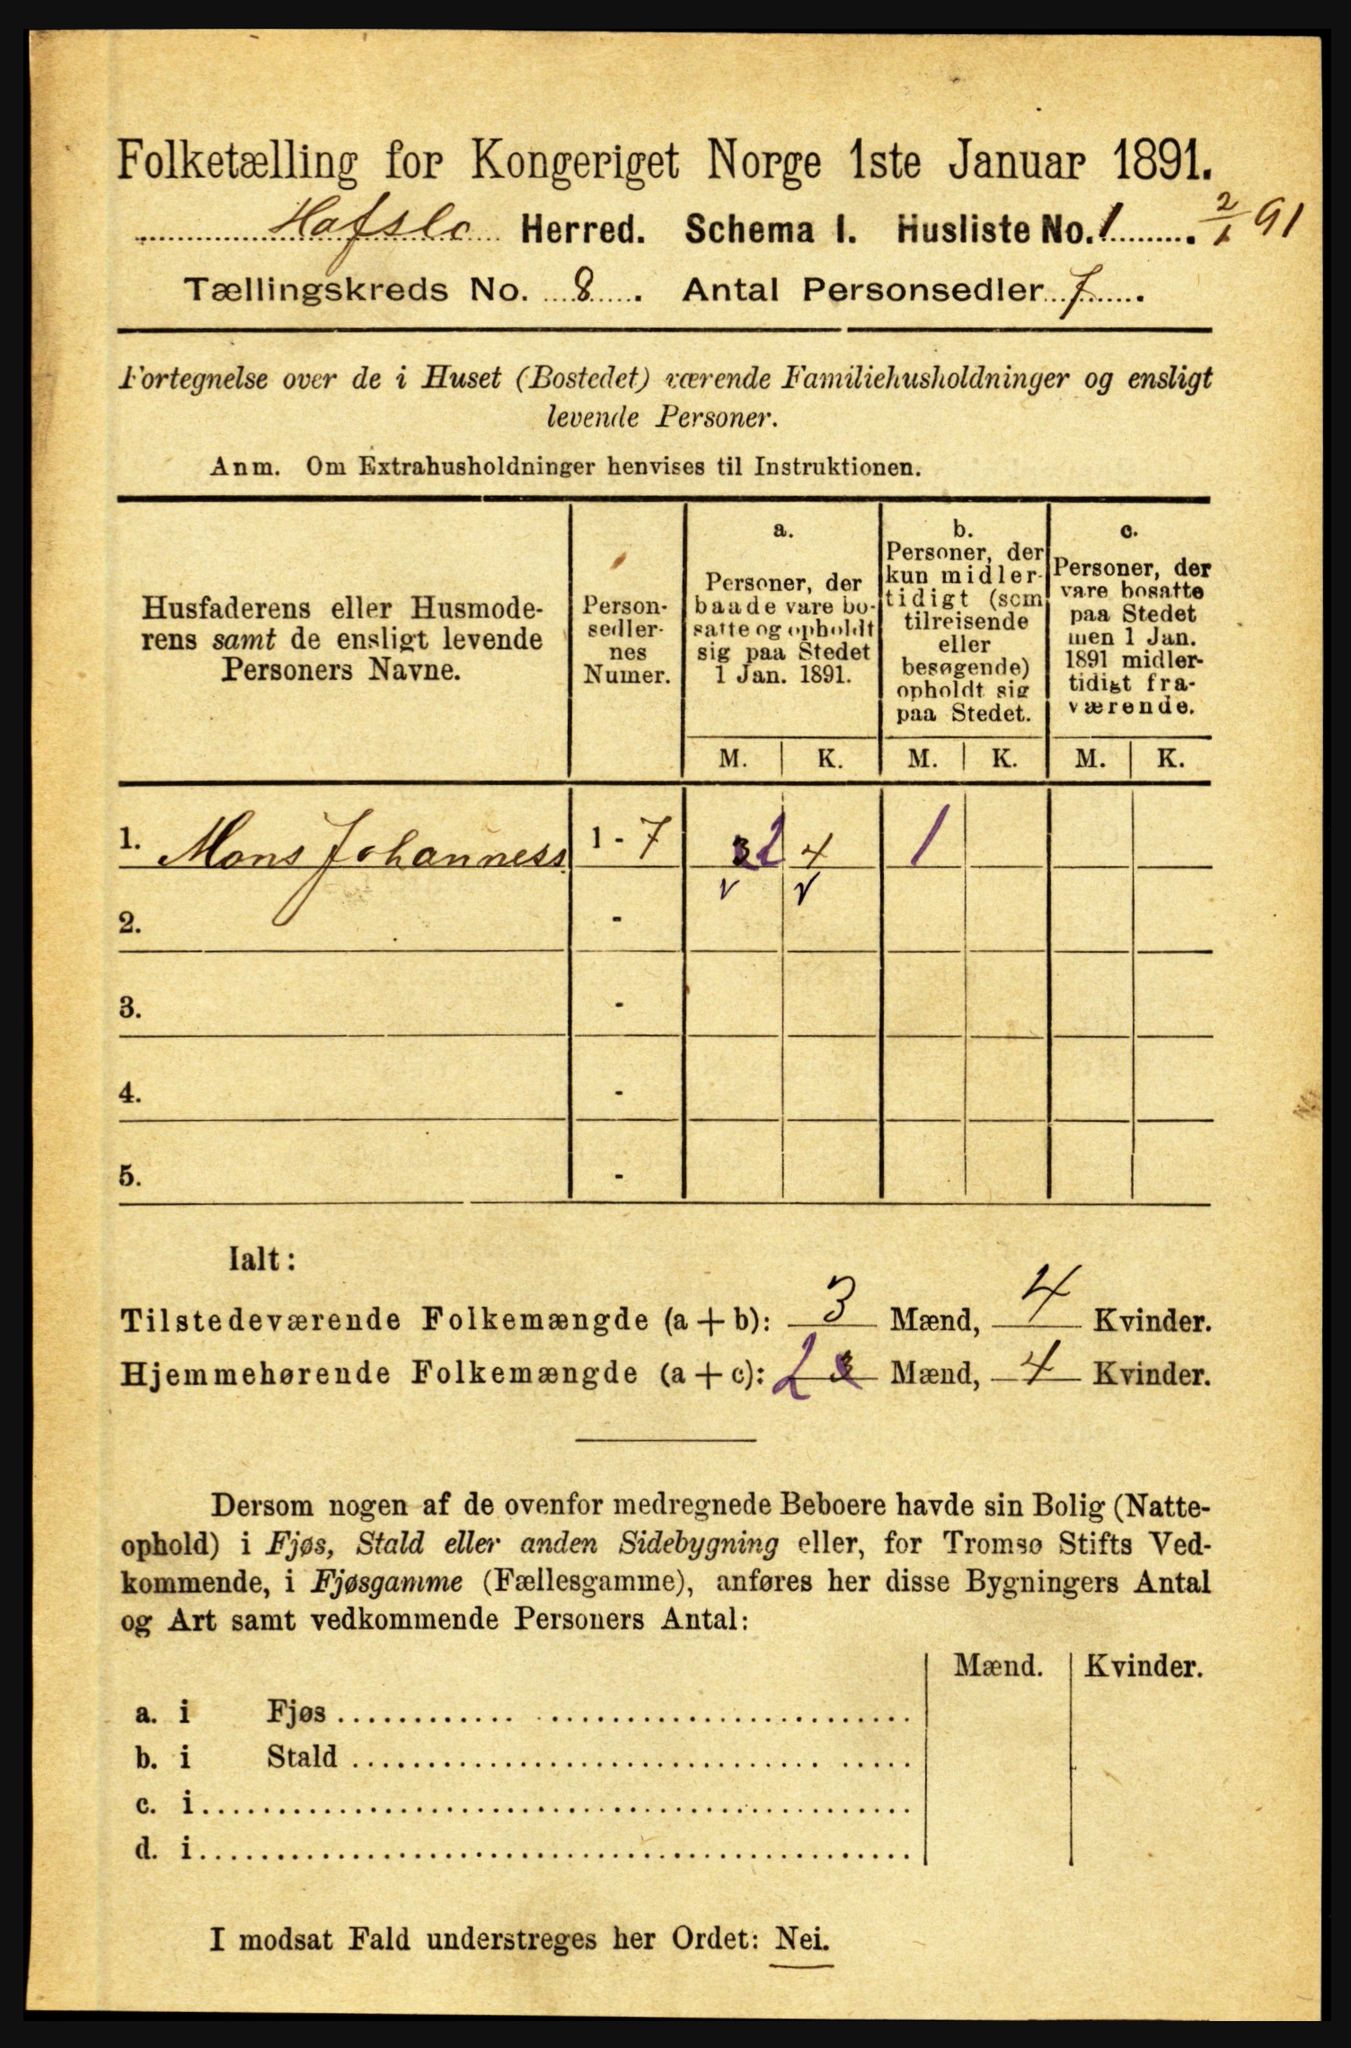 Folketælling for Kongeriget Norge 1ste Januar 1891.
Hafslo Herred. Schema I. Husliste No. 1. 2/1 91
Tællingskreds No. 8. Antal Personsedler 7.
Fortegnelse over de i Huset (Bostedet) værende Familiehusholdninger og ensligt
levende Personer.
Anm. Om Extrahusholdninger henvises til Instruktionen.
Husfaderens eller Husmode-
rens samt de ensligt levende
Personers Navne.
Person-
sedler-
nes
Numer.
a.
Personer, der
baade vare bo-
satte og opholdt
sig paa Stedet
1 Jan. 1891.
b.
Personer, der
kun midler-
tidigt (som
tilreisende
eller
besøgende)
opholdt sig
paa Stedet.
c.
Personer, der
vare bosatte
paa Stedet
men 1 Jan.
1891 midler-
tidigt fra-
værende.
M. K. M. K. M. K.
1. Mons Johanness 1 - 7 3 2 4 1
2. -
3. -
4. -
5. -
Ialt:
Tilstedeværende Folkemængde (a + b): 3 Mænd, 4 Kvinder.
Hjemmehørende Folkemængde (a + c): 2 3 Mænd, 4 Kvinder.
Dersom nogen af de ovenfor medregnede Beboere havde sin Bolig (Natte-
ophold) i Fjøs, Stald eller anden Sidebygning eller, for Tromsø Stifts Ved-
kommende, i Fjøsgamme (Fællesgamme), anføres her disse Bygningers Antal
og Art samt vedkommende Personers Antal:
Mænd. Kvinder.
a. i Fjøs
b. i Stald
c. i
d. i
I modsat Fald understreges her Ordet: Nei.